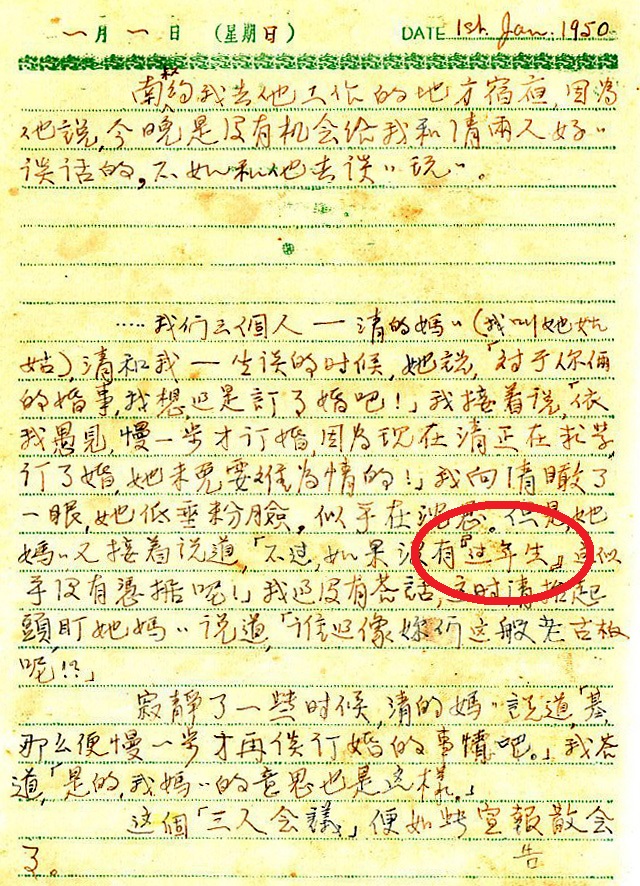 一月一日 (星期日) DATE 1st. Jan. 1950
南叔約我去他工作的地方宿夜,因為
他說,今晚是沒有机会给我和清兩人好〃
谈话的,不如和他去谈〃玩〃。
……我们三個人——清的媽〃(我叫她姑
姑),清和我——坐谈的时候,她說,「对于你倆
的婚事,我想还是訂了婚吧!」我接着说,「依
我愚見,慢一步才订婚,因為现在清正在求学,
订了婚,她未免要难為情的!」我向清瞰了
一眼,她低垂粉臉,似乎在沉思。但是,她
媽〃又接着说道,「不过,如果没有『过年生』这似
乎没有憑据呢!」我还没有荅話,这时,清抬起
頭盯她媽〃说道,「谁还像妳们这般老古板
呢!?」
寂靜了一些时候,清的媽〃説道,「基,
那么便慢一步才再谈订婚的事情吧。」我荅
道,「是的,我媽〃的意思也是这樣。」
这個「三人会議」便如此宣報散会
告
了。